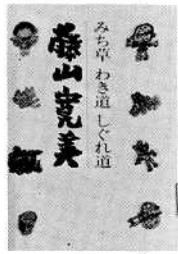 みち草 わき道 しぐれ道
藤山寛美